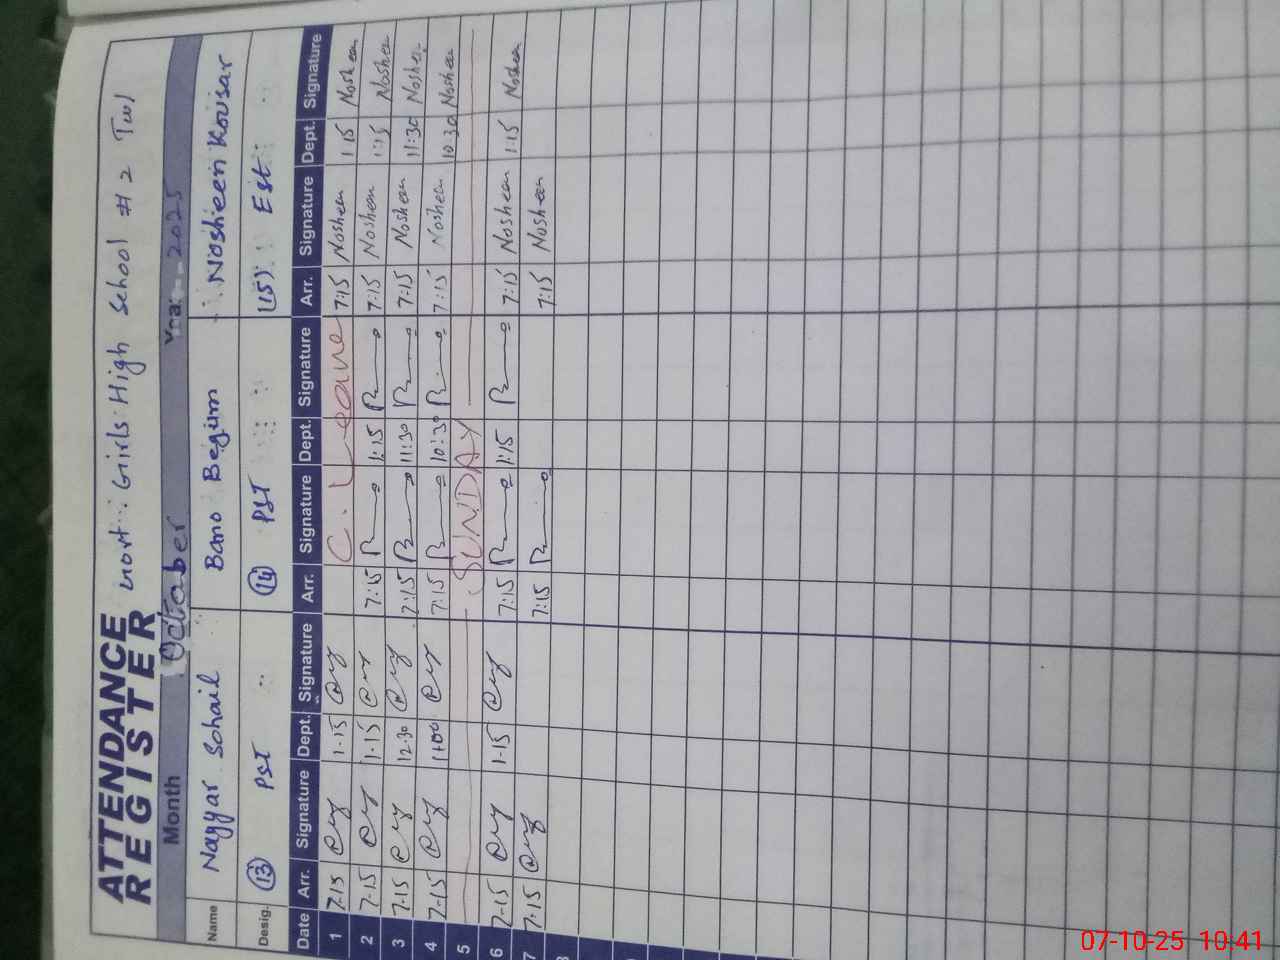 ATTENDANCE
REGISTER
Govt: Girls High School # 2 Twl
Month October Year 2025
Name Nayyar Sohail Bano Begum Nosheen Kousar
Desig. (13) PST (14) PST (15) Est
Date Arr. Signature Dept. Signature Arr. Signature Dept. Signature Arr. Signature Dept. Signature
1 7-15 1-15 C. Leave 7:15 Nosheen 1:15 Nosheen
2 7-15 1-15 7:15 1:15 7:15 Nosheen 1:15 Nosheen
3 7-15 12-30 7:15 11:30 7:15 Nosheen 11:30 Nosheen
4 7-15 1100 7:15 10:30 7:15 Nosheen 10:30 Nosheen
5 SUNDAY
6 7-15 1-15 7:15 1:15 7:15 Nosheen 1:15 Nosheen
7 7-15 7:15 7:15 Nosheen
8
07-10-25 10:41